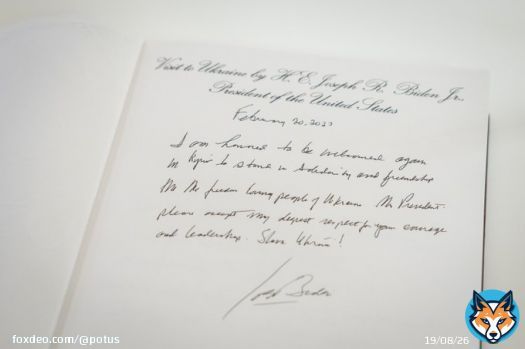 Visit to Ukraine by H. E. Joseph R. Biden Jr.
President of the United States
February 20, 2023
I am honored to be welcomed again
in Kyiv to stand in solidarity and friendship
with the freedom loving people of Ukraine. Mr President
please accept my deepest respect for your courage
and leadership. Slava Ukraini!
Joe Biden
foxdeo.com/@potus
19/08/26